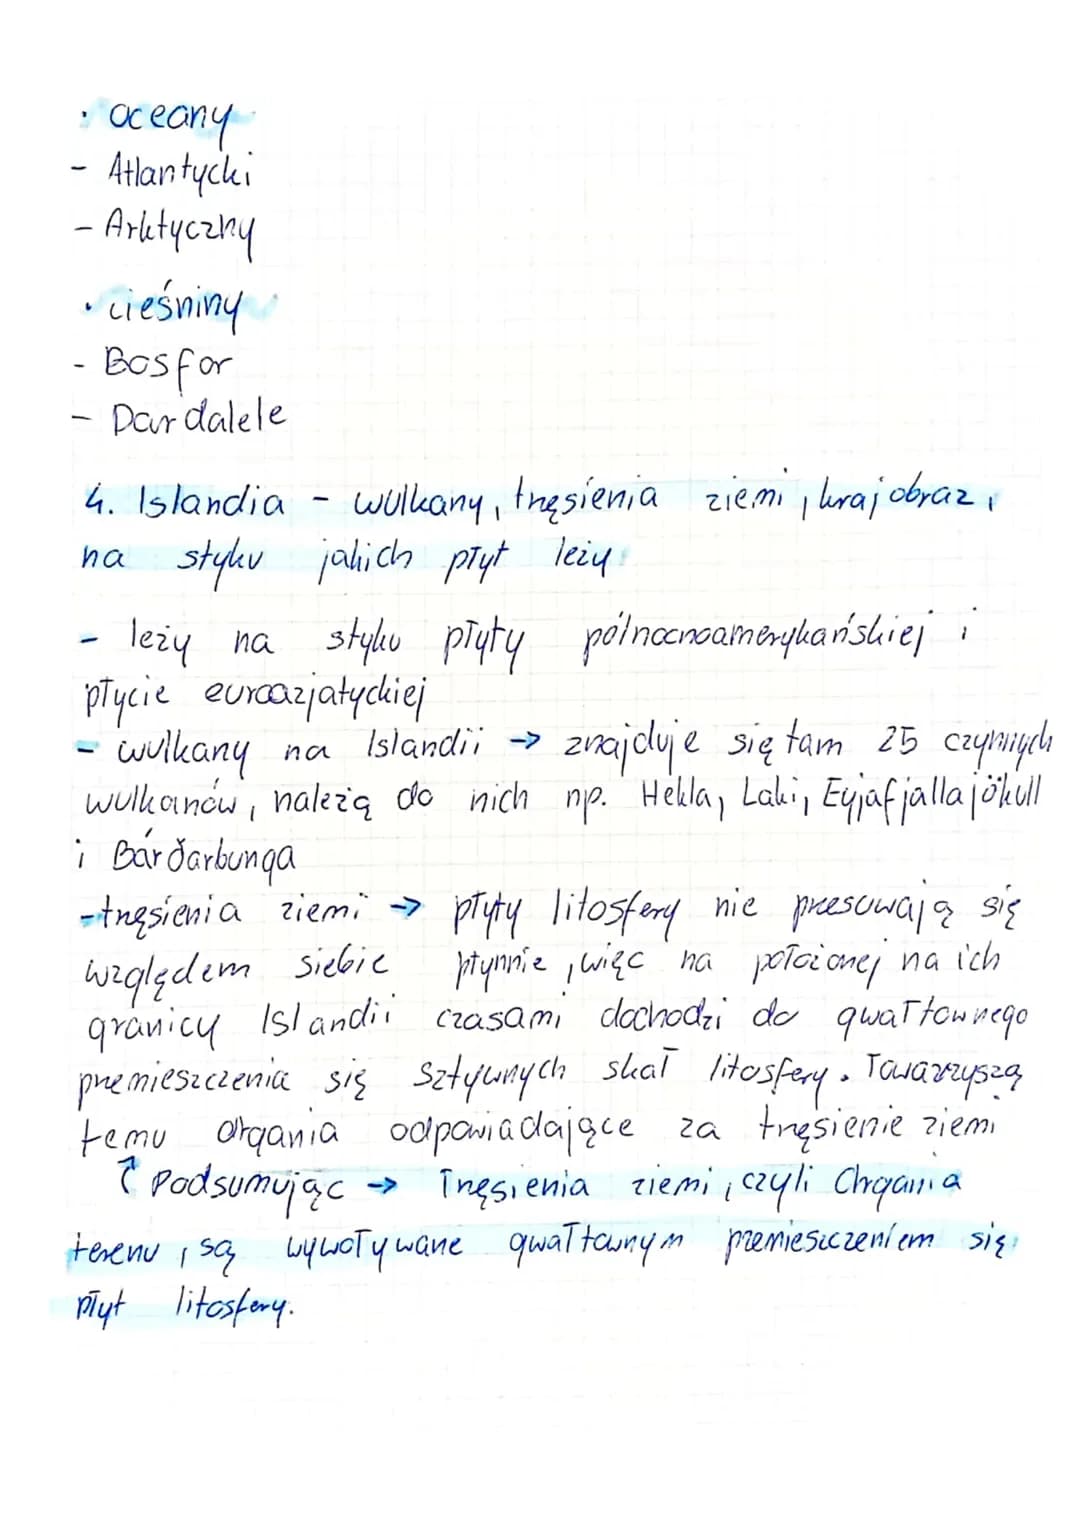 • oceany
- Atlantycki
- Arktyczny
• cieśniny
- Bosfor
- Dardalele
4. Islandia - wulkany, trzęsienia ziemi, krajobraz,
na styku jakich płyt leży
- leży na styku płyty północnoamerykańskiej i
płycie euroazjatyckiej
- wulkany na Islandii → znajduje się tam 25 czynnych
wulkanów, należą do nich np. Hekla, Laki, Eyjafjallajökull
i Bárðarbunga
- trzęsienia ziemi → płyty litosfery nie przesuwają się
względem siebie płynnie, więc na położonej na ich
granicy Islandii czasami dochodzi do gwałtownego
przemieszczenia się sztywnych skał litosfery. Towarzyszą
temu drgania odpowiadające za trzęsienie ziemi
↱ Podsumując → Trzęsienia ziemi, czyli drgania
terenu, są wywoływane gwałtownym przemieszczeniem się
płyt litosfery.